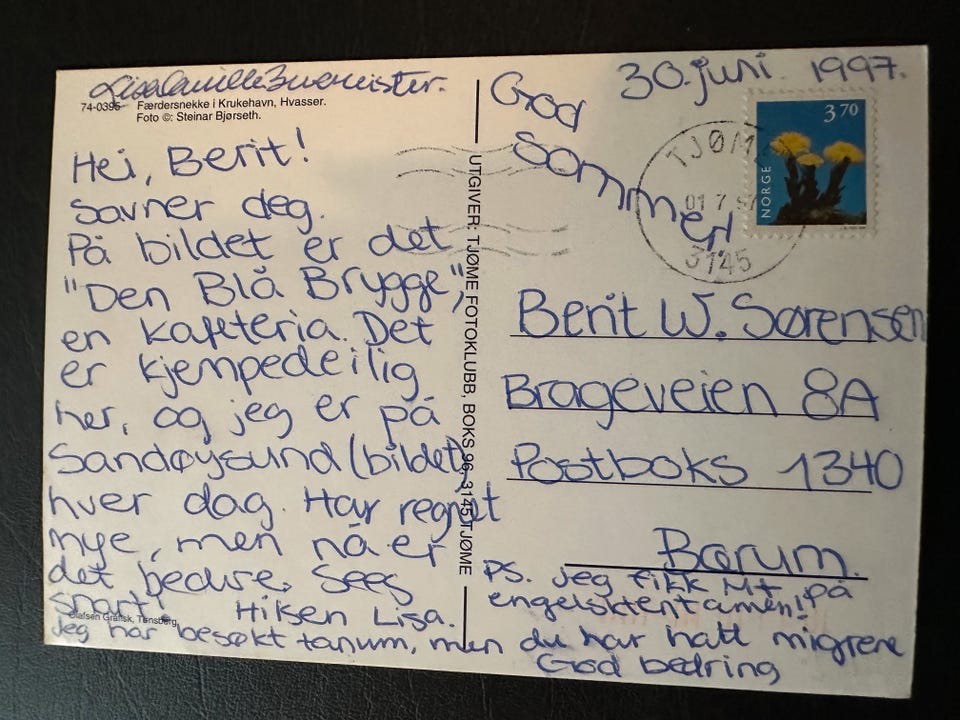 30. juni 1997.
God
Sommer!
74-0395 Færdersnekke i Krukehavn, Hvasser.
Foto ©: Steinar Bjørseth.
Hei, Berit!
Savner deg.
På bildet er det
"Den Blå Brygge",
en kafeteria. Det
er kjempedeilig
her, og jeg er på
Sandøysund (bildet)
hver dag. Har regnet
mye, men nå er
det bedre. Sees
snart! Hilsen Lisa.
Olafsen Grafisk, Tønsberg
Jeg har besøkt tanum, men du har hatt migrene
God bedring
UTGIVER: TJØME FOTOKLUBB, BOKS 96, 3145 TJØME
NORGE
3 70
TJØME
01 7 97
3145
Berit W. Sørensen
Brageveien 8A
Postboks 1340
Bærum.
PS. Jeg fikk M+ på
engelsktentamen!!